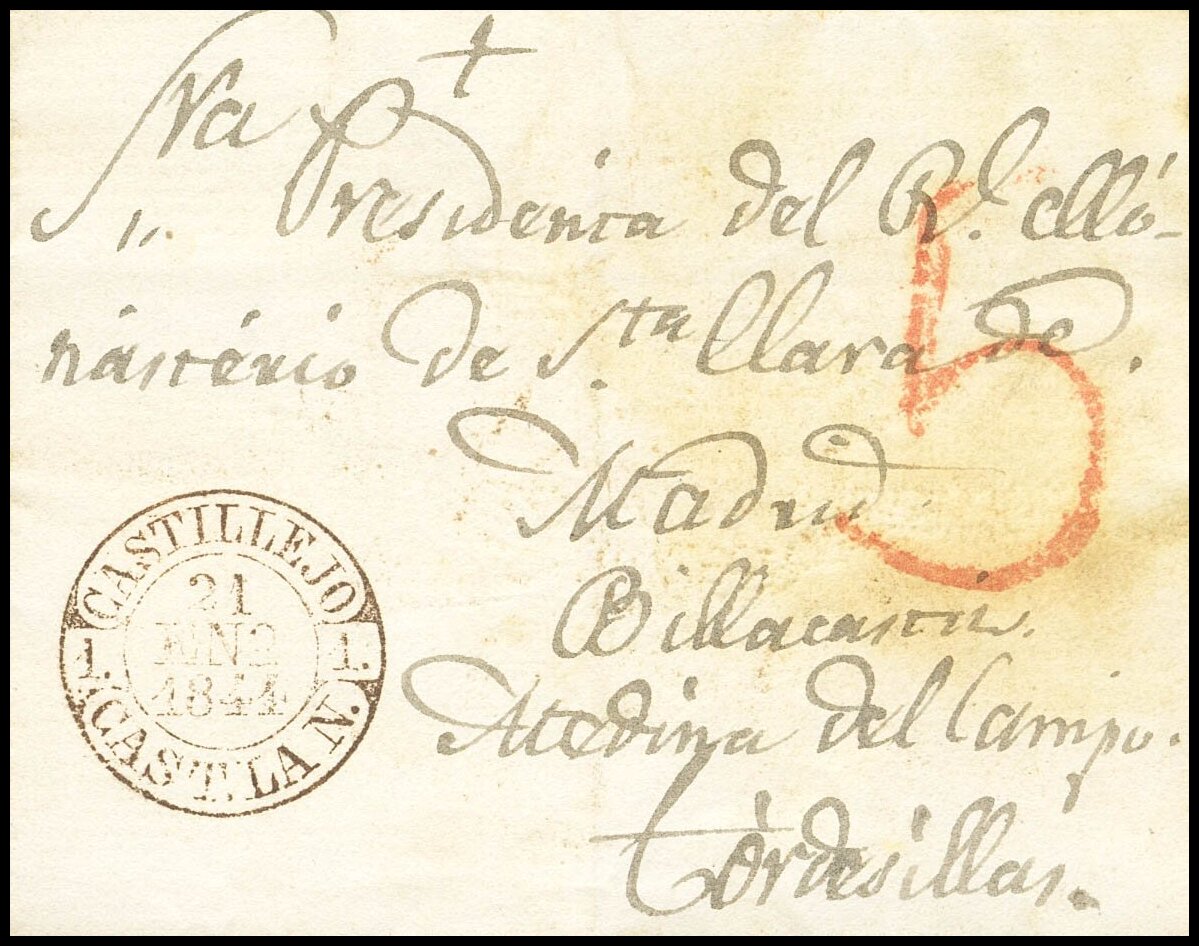 +
Sra Presidenta del Rl. Mó-
nástério de Sta. Clara de.
Madrid
Billacastin.
Medina del Campo.
Tórdesillás.
5
CASTILLEJO
1. 21 1.
ENE
1844
CAST. LA N.